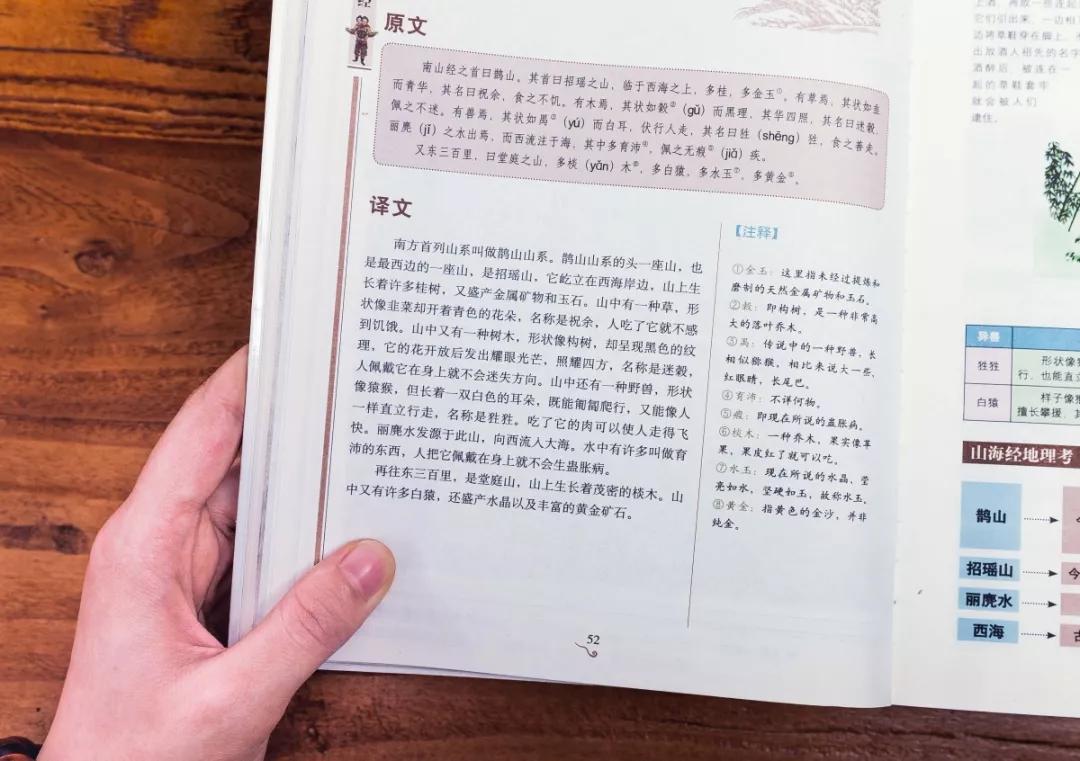 经
原文
南山经之首曰鹊山。其首曰招瑶之山，临于西海之上，多桂，多金玉①。有草焉，其状如韭
而青华，其名曰祝余，食之不饥。有木焉，其状如榖②（gǔ）而黑理，其华四照，其名曰迷榖，
佩之不迷。有兽焉，其状如禺③（yú）而白耳，伏行人走，其名曰狌（shēng）狌，食之善走。
丽麂（jǐ）之水出焉，而西流注于海，其中多育沛④，佩之无瘕⑤（jiǎ）疾。
又东三百里，曰堂庭之山，多棪（yǎn）木⑥，多白猿，多水玉⑦，多黄金⑧。
译文
南方首列山系叫做鹊山山系。鹊山山系的头一座山，也
是最西边的一座山，是招瑶山，它屹立在西海岸边，山上生
长着许多桂树，又盛产金属矿物和玉石。山中有一种草，形
状像韭菜却开着青色的花朵，名称是祝余，人吃了它就不感
到饥饿。山中又有一种树木，形状像构树，却呈现黑色的纹
理，它的花开放后发出耀眼光芒，照耀四方，名称是迷榖，
人佩戴它在身上就不会迷失方向。山中还有一种野兽，形状
像猿猴，但长着一双白色的耳朵，既能匍匐爬行，又能像人
一样直立行走，名称是狌狌。吃了它的肉可以使人走得飞
快。丽麂水发源于此山，向西流入大海。水中有许多叫做育
沛的东西，人把它佩戴在身上就不会生蛊胀病。
再往东三百里，是堂庭山，山上生长着茂密的棪木。山
中又有许多白猿，还盛产水晶以及丰富的黄金矿石。
【注释】
①金玉：这里指未经过提炼和
磨制的天然金属矿物和玉石。
②榖：即构树，是一种非常高
大的落叶乔木。
③禺：传说中的一种野兽，长
相似猕猴，相比来说大一些，
红眼睛，长尾巴。
④育沛：不详何物。
⑤瘕：即现在所说的蛊胀病。
⑥棪木：一种乔木，果实像苹
果，果皮红了就可以吃。
⑦水玉：现在所说的水晶，莹
亮如水，坚硬如玉，故称水玉。
⑧黄金：指黄色的金沙，并非
纯金。
52
它们引出来，一边相
边将草鞋穿在脚上，
出放酒人祖先的名字
酒醉后，被连在一
起的草鞋套牢
就会被人们
逮住。
异兽
狌狌
形状像
行，也能直立
白猿
样子像猴
擅长攀援，其
山海经地理考
鹊山
招瑶山
今
丽麂水
西海
古